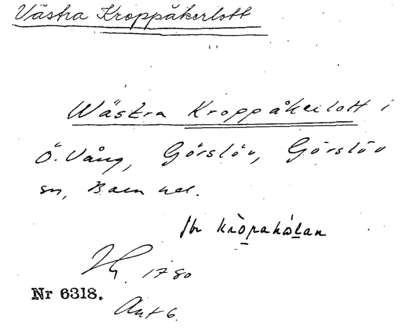 Västra Kroppåkerlott
Wästra Kroppåkerlott i
Ö. Vång, Görslöv, Görslöv
sn, Bara hd.
jfr kròpahólan
1780
Nr 6318.
Akt 6.